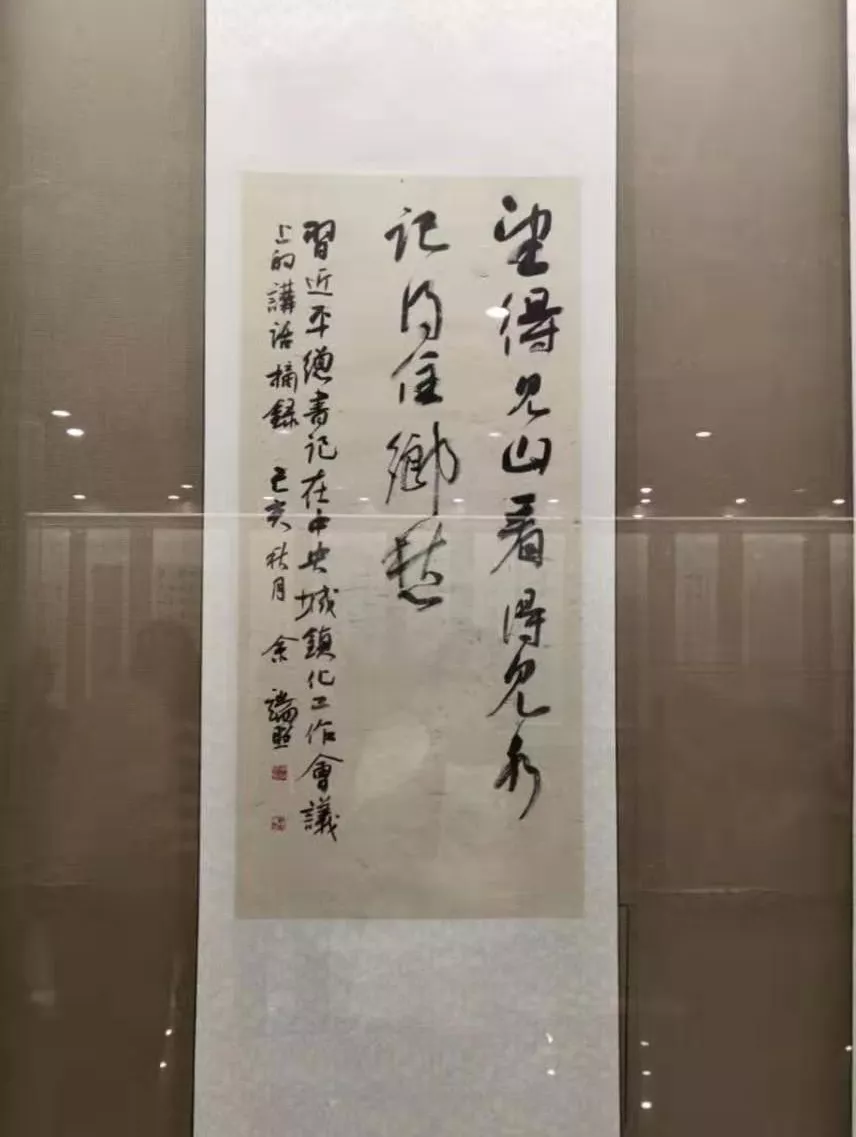 望得见山看得见水
记得住鄉愁
習近平總書记在中央城鎮化工作會議
上的講话摘録 己亥秋月 余端照